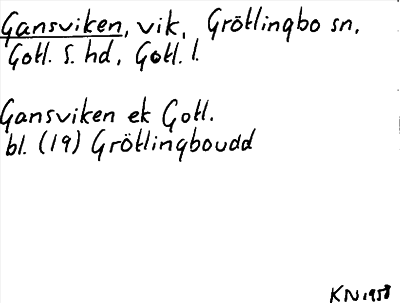 Gansviken, vik, Grötlingbo sn,
Gotl. S. hd, Gotl. l.
Gansviken ek Gotl.
bl. (19) Grötlingboudd
KN 1958